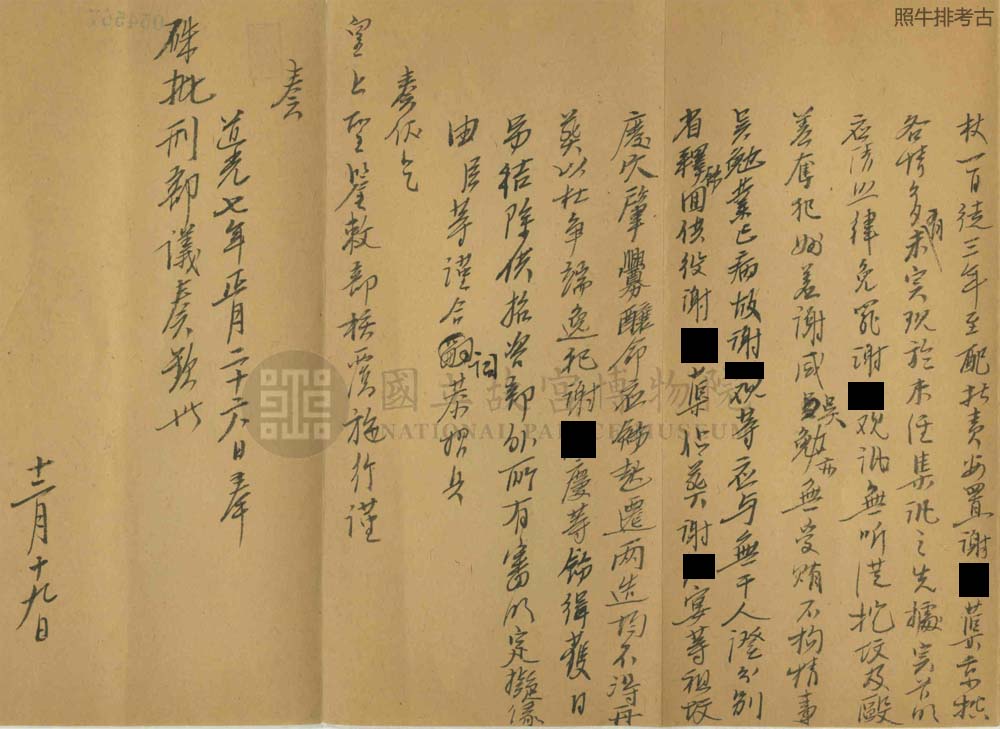 照牛排考古
杖一百徒三年至配折責安置謝 蕖京控
各情多有未實現於未經集訊之先據實首明
應請照律免罪謝 观訊無听従挖坟及毆
差奪犯ddd差謝咸吴勉亦無受賄不拘情事
吴勉業已病故謝 观等应与無干人證分别
省釋飭回供役謝 蕖佔葬謝 寅等祖坟
慶次肇釁釀命应飭起遷两造均不得再
葬以杜争端逸犯謝 慶等飭緝獲日
另結除供招咨部外所有審明定擬緣
由臣等謹合詞恭摺具
奏伏乞
皇上聖鑒敕部核覆施行謹
奏
道光七年正月二十六日奉
硃批刑部議奏欽此
十二月十九日
國立故宮博物院
NATIONAL PALACE MUSEUM